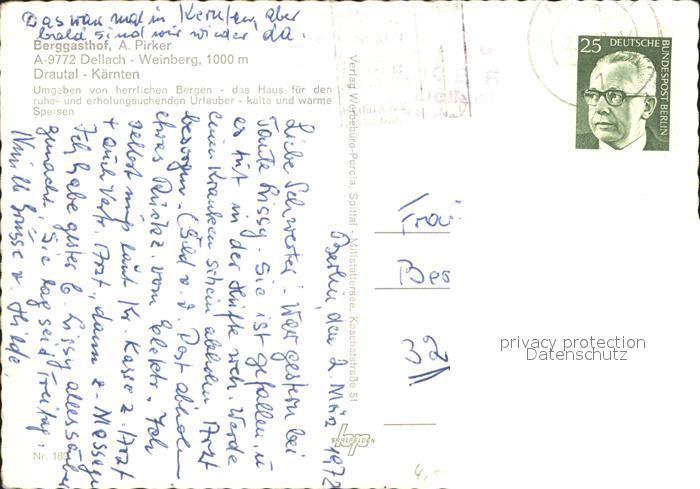 Das war mal in Kärnten, aber
bald sind wir wieder da.
Berggasthof, A. Pirker
A-9772 Dellach - Weinberg, 1000 m
Drautal - Kärnten
Umgeben von herrlichen Bergen - das Haus für den
ruhe- und erholungsuchenden Urlauber - kalte und warme
Speisen
Berlin, den 2. März 1972
Liebe Schwester! War gestern bei
Tante Lissy. Sie ist gefallen u
es tut in der Hüfte weh. Werde
einen Krankenschein abholen Arzt
besorgen. (Geld v. d. Post abholen
etwas Rückz. vom Elektr. Ich
selbst muß laut Kr. Kasse z. Arzt
+ auch Vertr. Arzt, dann z.
Ich habe gestern b. Lissy alles sauber
gemacht. Sie lag seit Freitag.
Grüsse v Hilde
Verlag Werbebüro-Porcia, Spittal - Millstättersee, Koschatstraße 51
Nr. 185
25 DEUTSCHE
BUNDESPOST BERLIN
Frau
privacy protection
Datenschutz
4,-